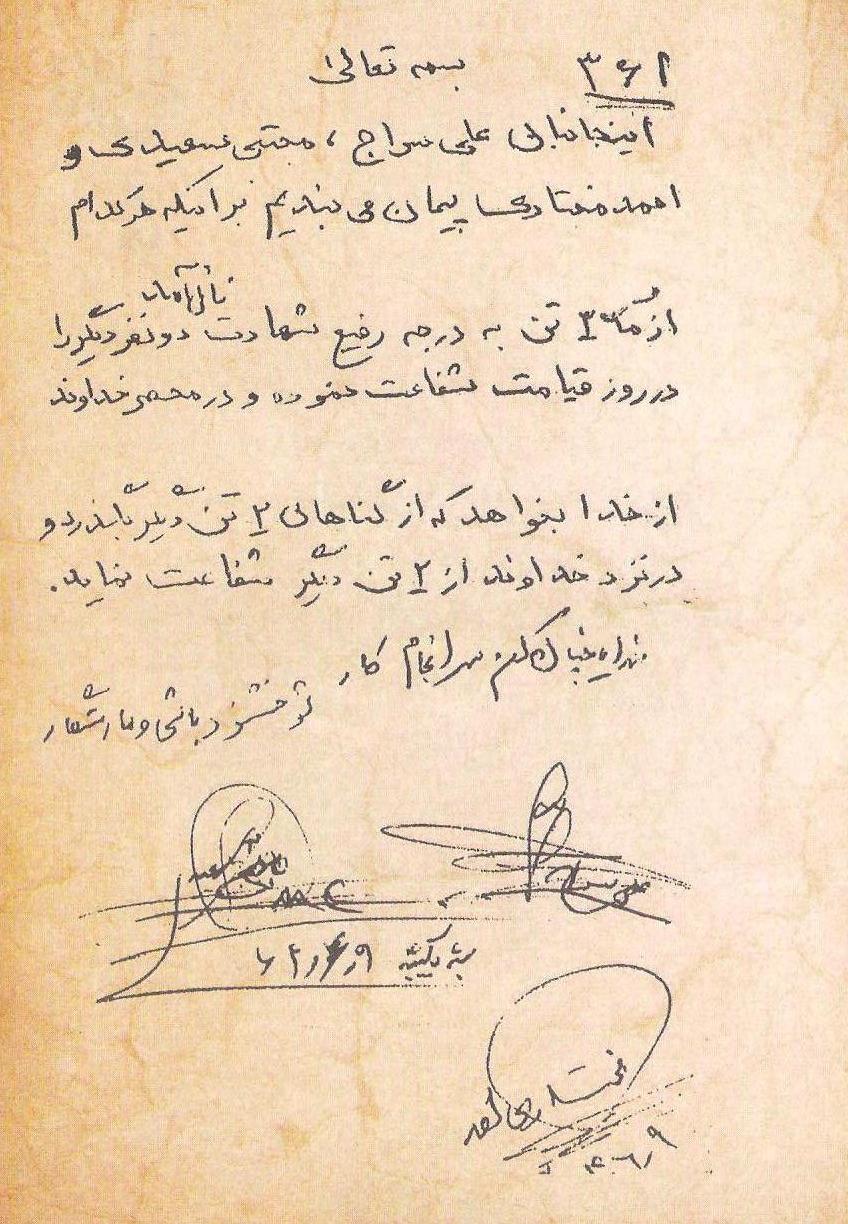 بسمه تعالی
اینجانبان علی سراج ، مجتبی سعیدی و
احمد مختاری پیمان می بندیم بر اینکه هرکدام
نائل آمدند
از ما ۳ تن به درجه رفیع شهادت دو نفر دیگر را
در روز قیامت شفاعت نموده و در محضر خداوند
از خدا بخواهد که از گناهان ۲ تن دیگر بگذرد و
در نزد خداوند از ۲ تن دیگر شفاعت نماید.
خدایا چنان کن سرانجام کار
تو خشنود باشی و ما رستگار
علی سراج
شب یکشنبه
مختاری احمد